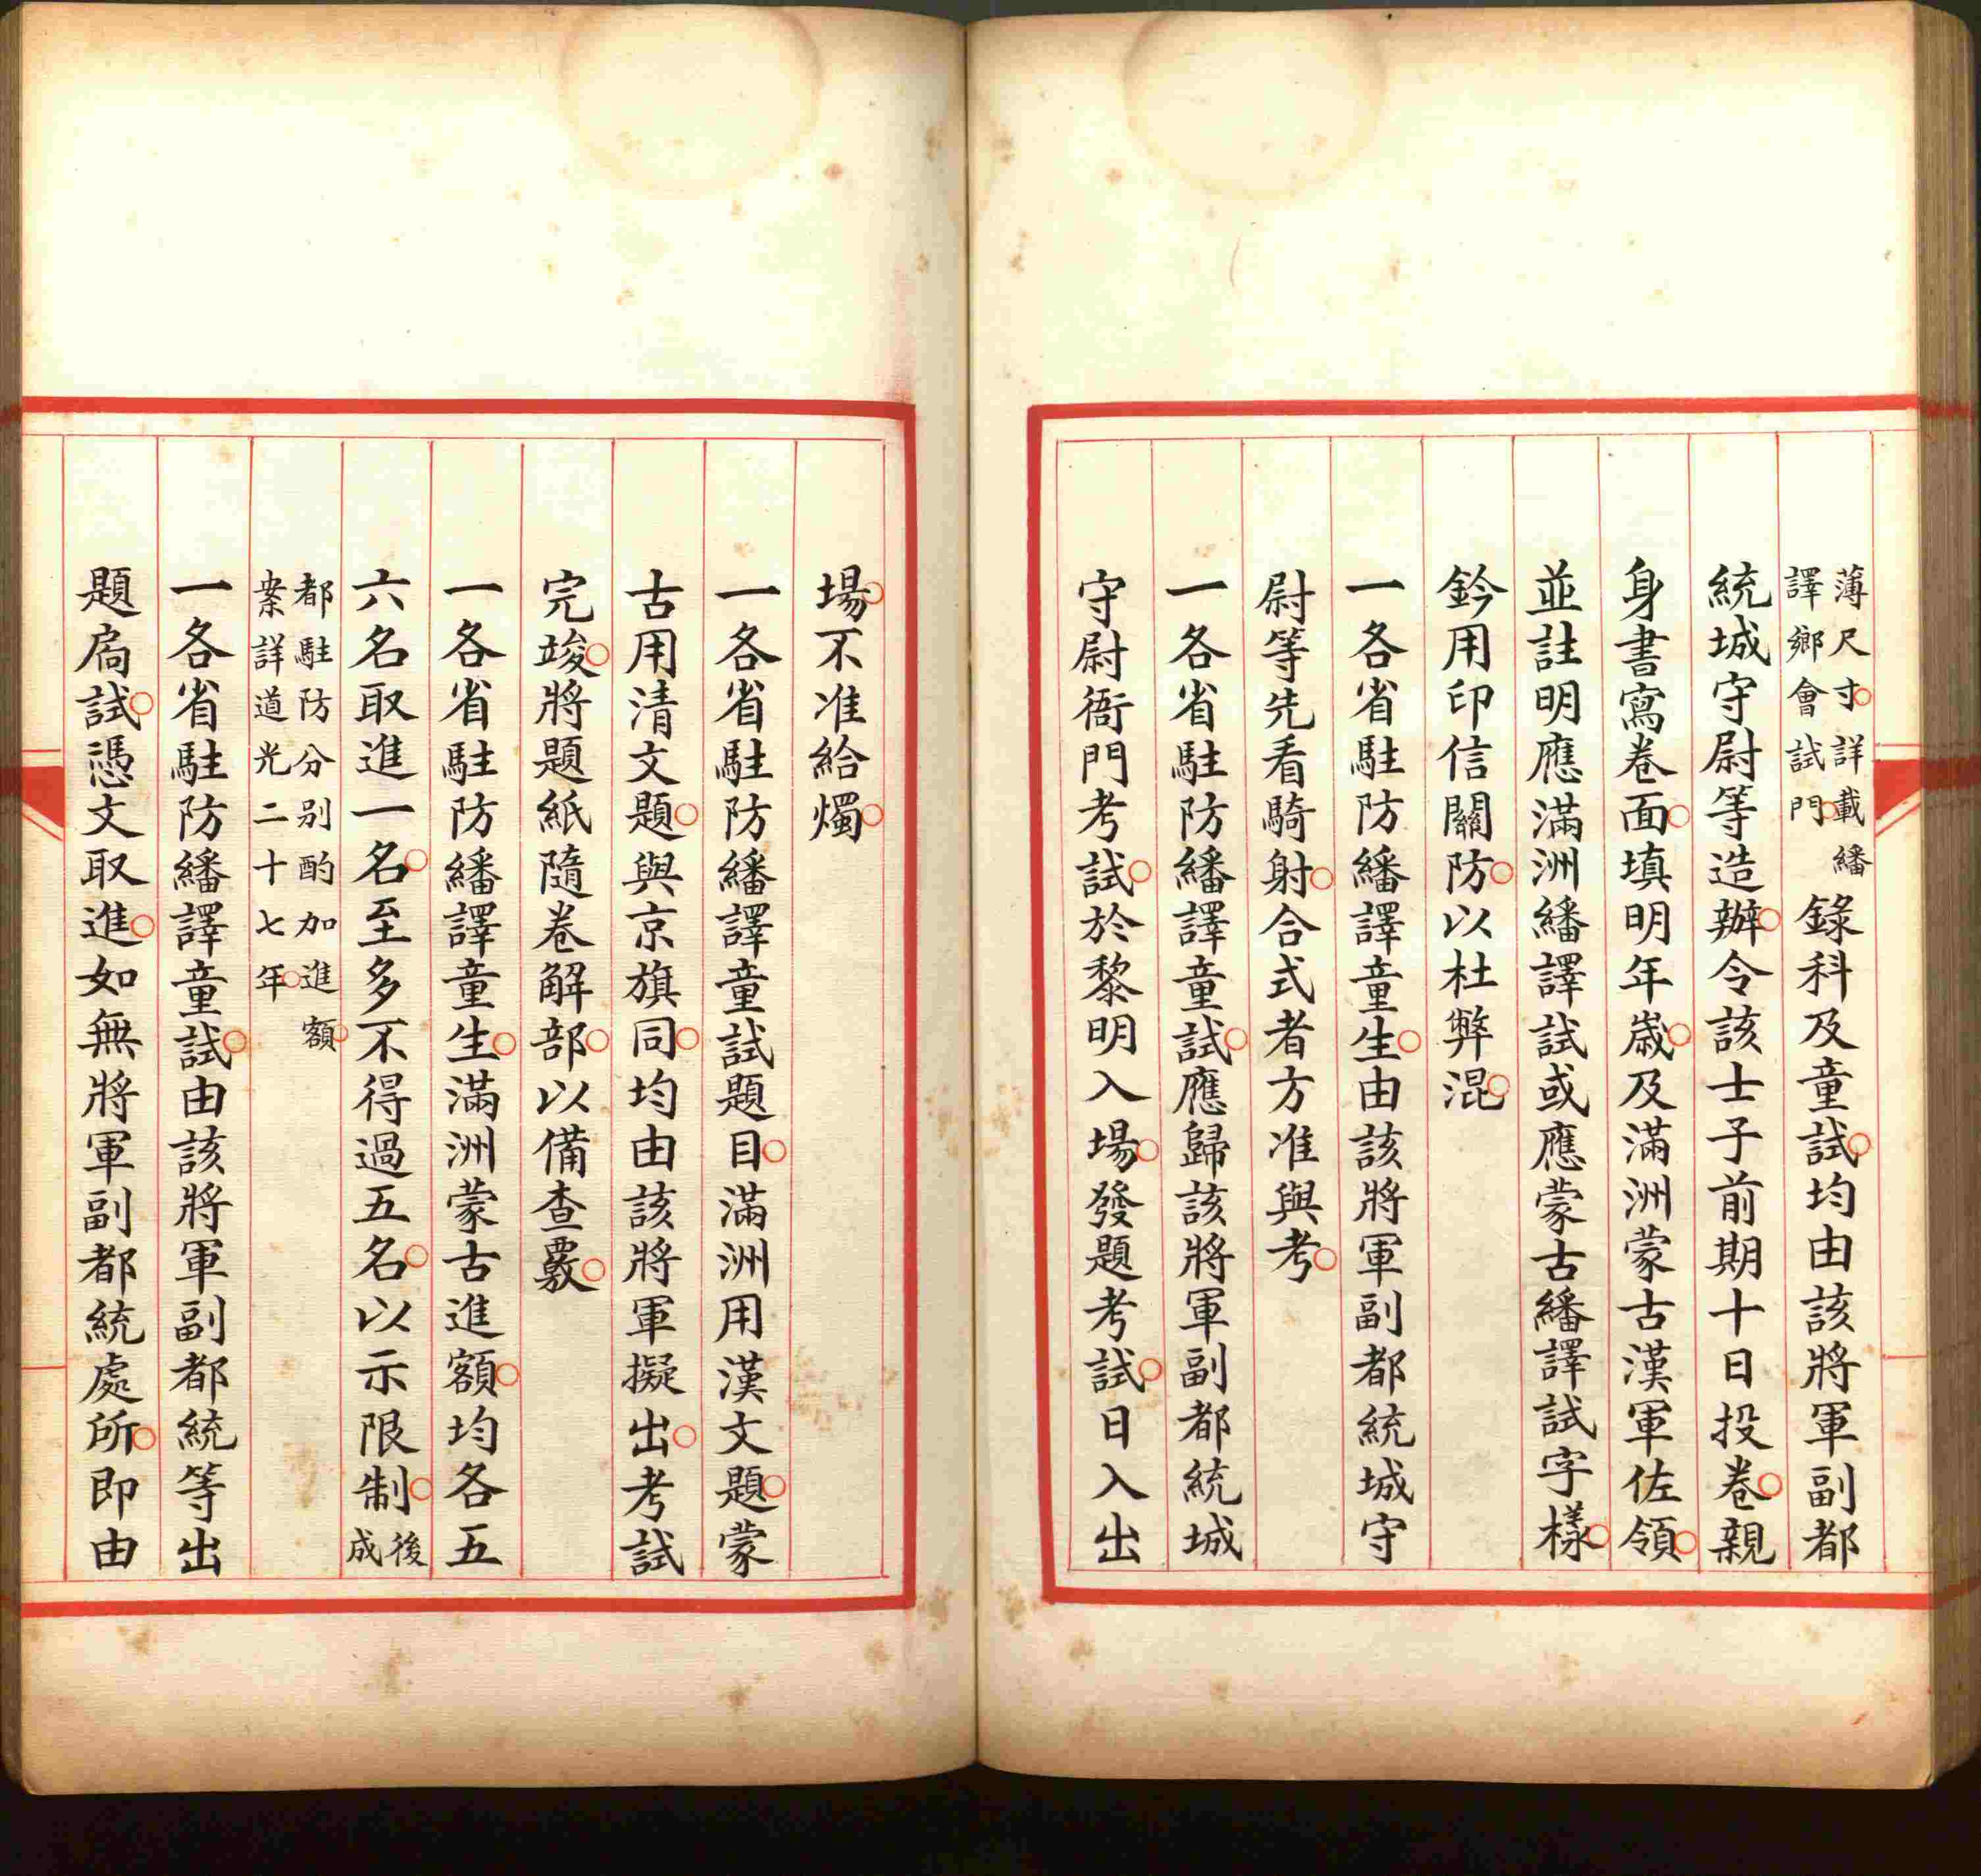 薄尺寸詳載繙
譯鄉會試門
錄科及童試均由該將軍副都
統城守尉等造辦令該士子前期十日投卷親
身書寫卷面填明年歲及滿洲蒙古漢軍佐領
並註明應滿洲繙譯試或應蒙古繙譯試字樣
鈐用印信關防以杜弊混
一各省駐防繙譯童生由該將軍副都統城守
尉等先看騎射合式者方准與考
一各省駐防繙譯童試應歸該將軍副都統城
守尉衙門考試於黎明入場發題考試日入出
場不准給燭
一各省駐防繙譯童試題目滿洲用漢文題蒙
古用清文題與京旗同均由該將軍擬出考試
完竣將題紙隨卷解部以備查覈
一各省駐防繙譯童生滿洲蒙古進額均各五
六名取進一名至多不得過五名以示限制
後
成
都駐防分别酌加進額
案詳道光二十七年
一各省駐防繙譯童試由該將軍副都統等出
題扃試憑文取進如無將軍副都統處所即由